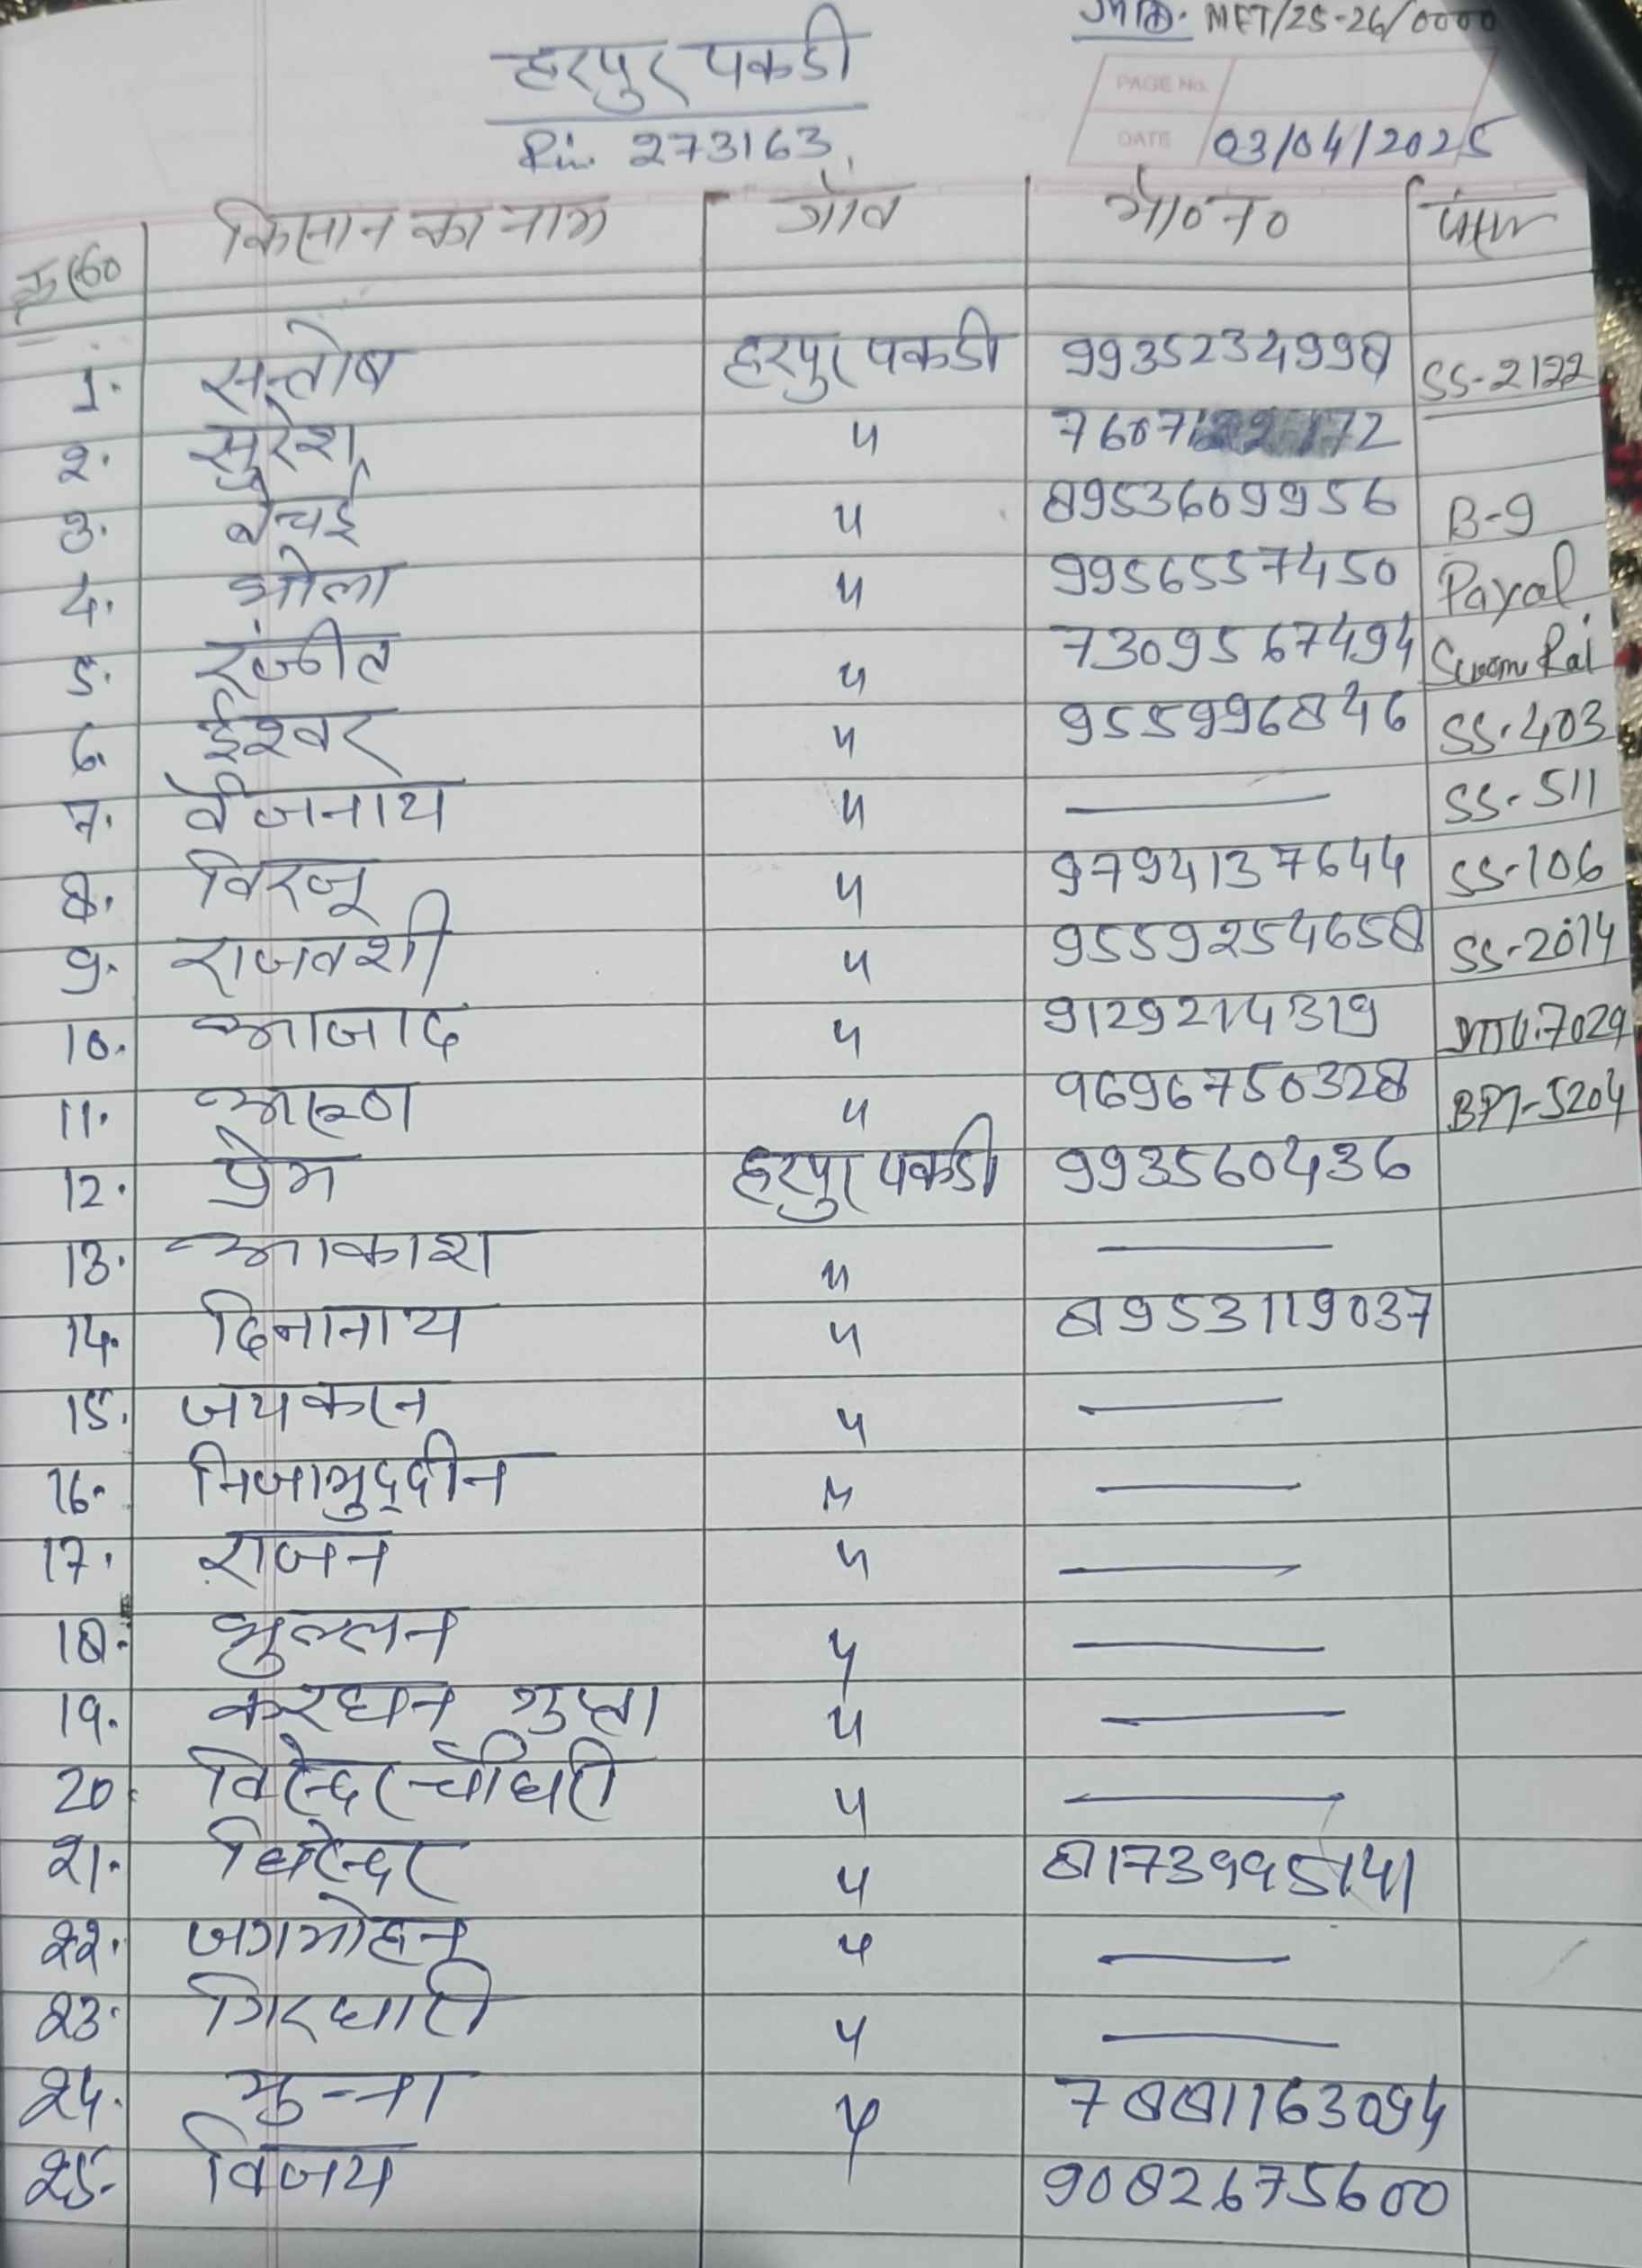 MFT/25-26/0000
हरपुर पकडी
Pin. 273163
PAGE No.
DATE 03/04/2025
क्र०सं० किसान का नाम गाँव मो०न०
1. सन्तोष हरपुर पकडी 9935234998 SS-2122
२. सुरेश 〃 72
3. वेचई 〃 8953609956 B-9
4. भोला 〃 9956557450 Payal
5. रंजीत 〃 7309567494
6. ईश्वर 〃 9559968246 SS-403
7. वैजनाथ 〃 — SS-511
8. विरजू 〃 9794137644 SS-106
9. राजवशी 〃 9559254658 SS-2014
10. आजाद 〃 9129214319 7029
11. 〃 9696750328 5204
12. प्रेम हरपुर पकडी 993560436
13. आकाश 〃 —
14. दिनानाथ 〃 8953119037
15. जयकरन 〃 —
16. निजामुद्दीन 〃 —
17. राजन 〃 —
18. भुल्लन 〃 —
19. करधन गुप्ता 〃 —
20. विरेन्दर चौधरी 〃 —
२1. धिरेन्दर 〃 8173995141
२२. जगमोहन 〃 —
२3. गिरधारी 〃 —
२4. मुन्ना 〃 7881163094
२5. विजय 9082675600